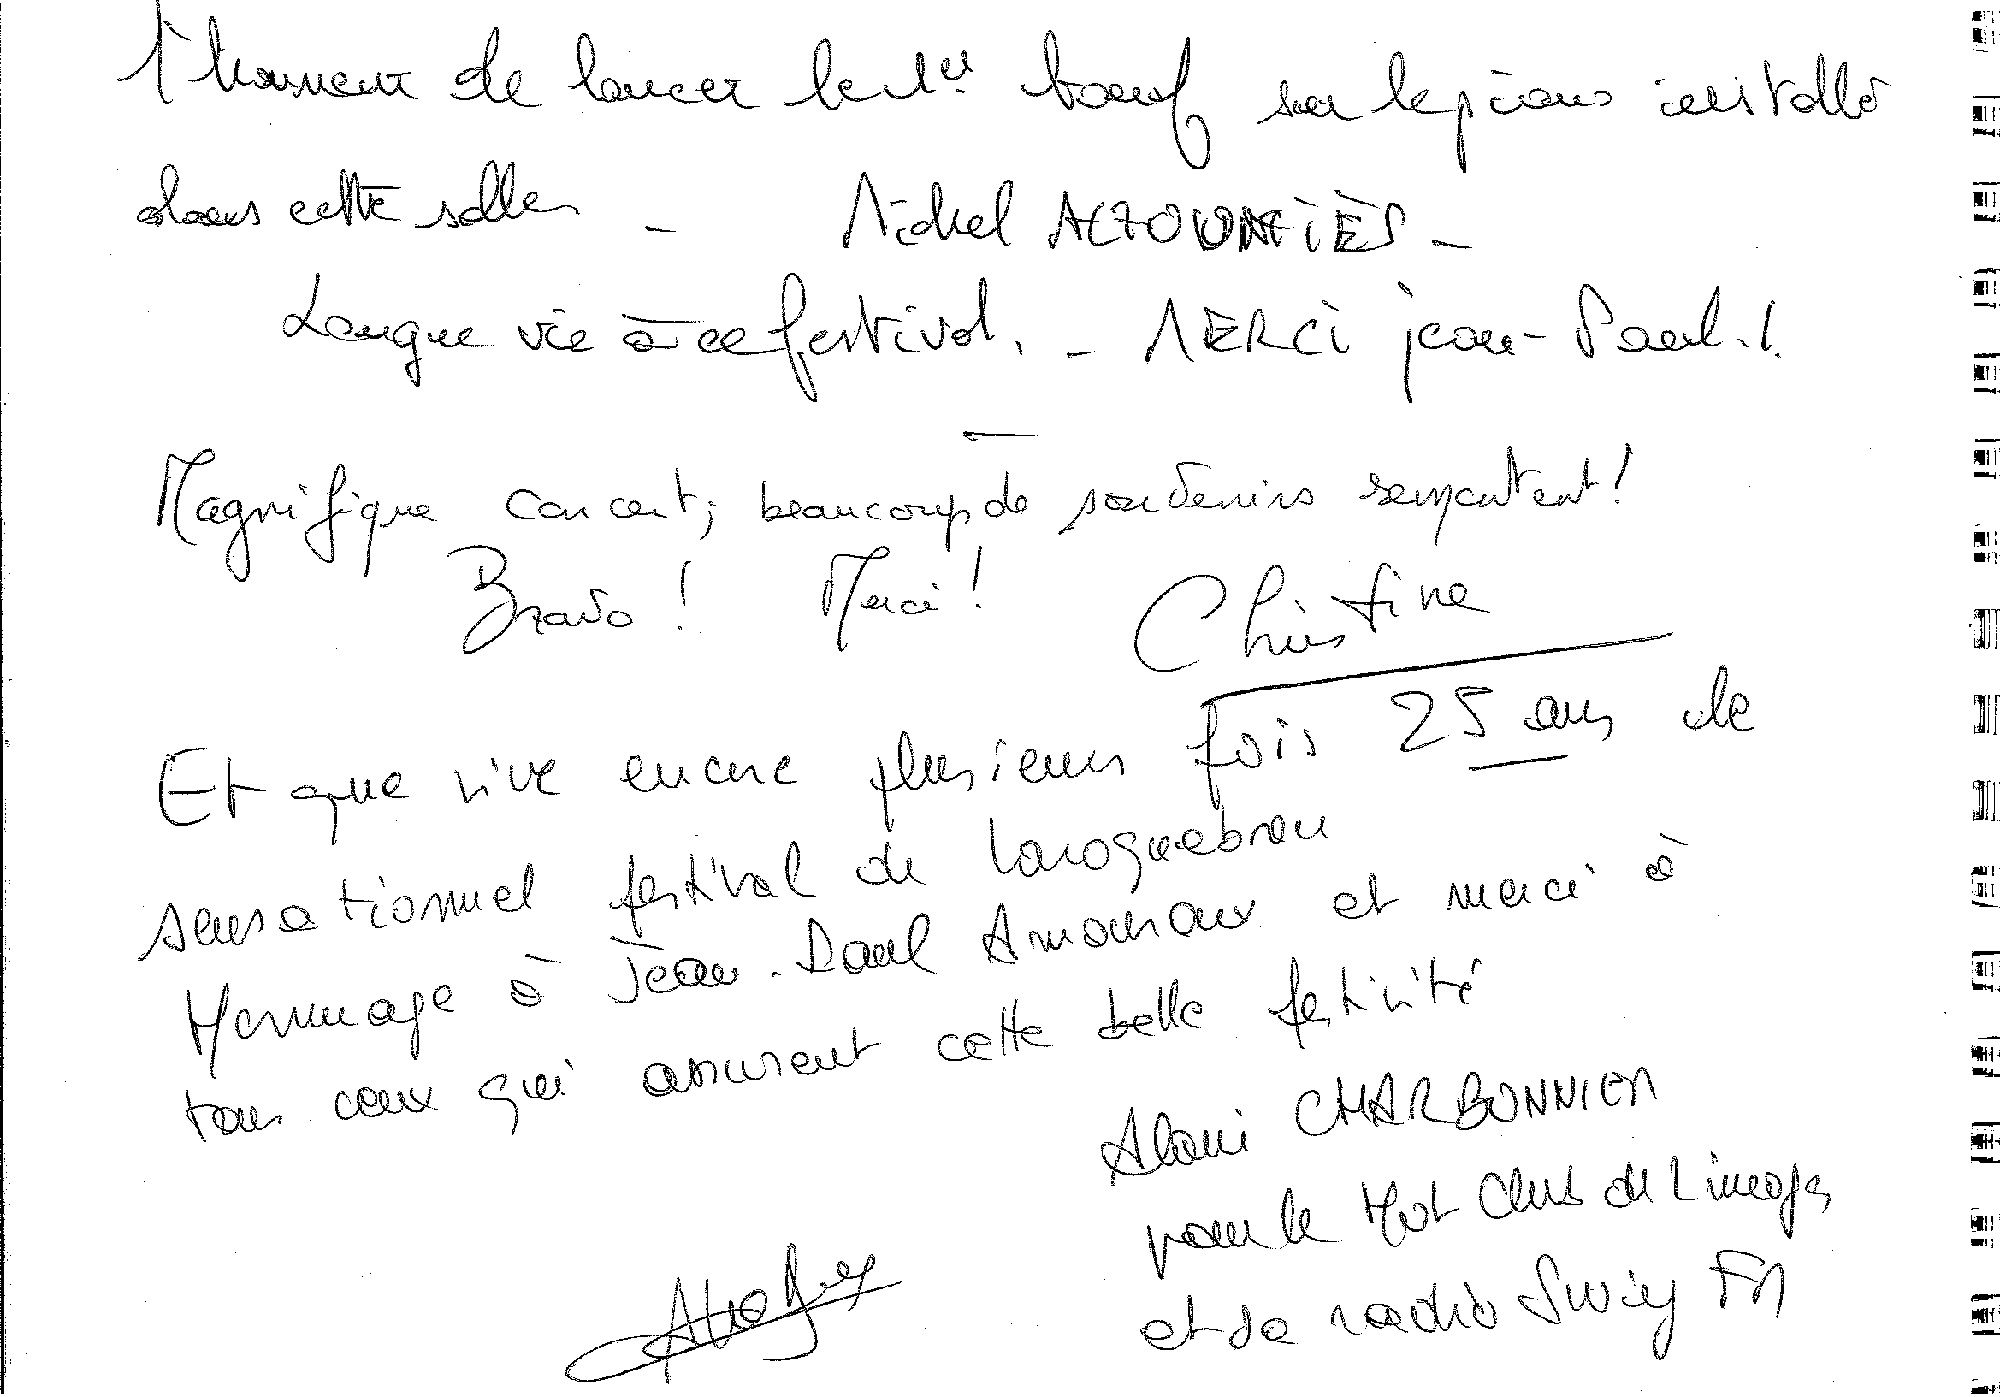 l'honneur de lancer le 1er bœuf sur le piano installé
dans cette salle -
Michel
Longue vie à ce festival. - MERCI jean-Paul.!
Magnifique concert; beaucoup de souvenirs remontent!
Bravo! Merci! Christine
Et que vive encore plusieurs fois 25 ans de
sensationnel festival de Laroquebrou
Hommage à Jean-Paul Amouroux et merci à
tous ceux qui assurent cette belle festivité
Alain CHARBONNIER
pour le Hot Club de Limoges
et de radio Swing FM